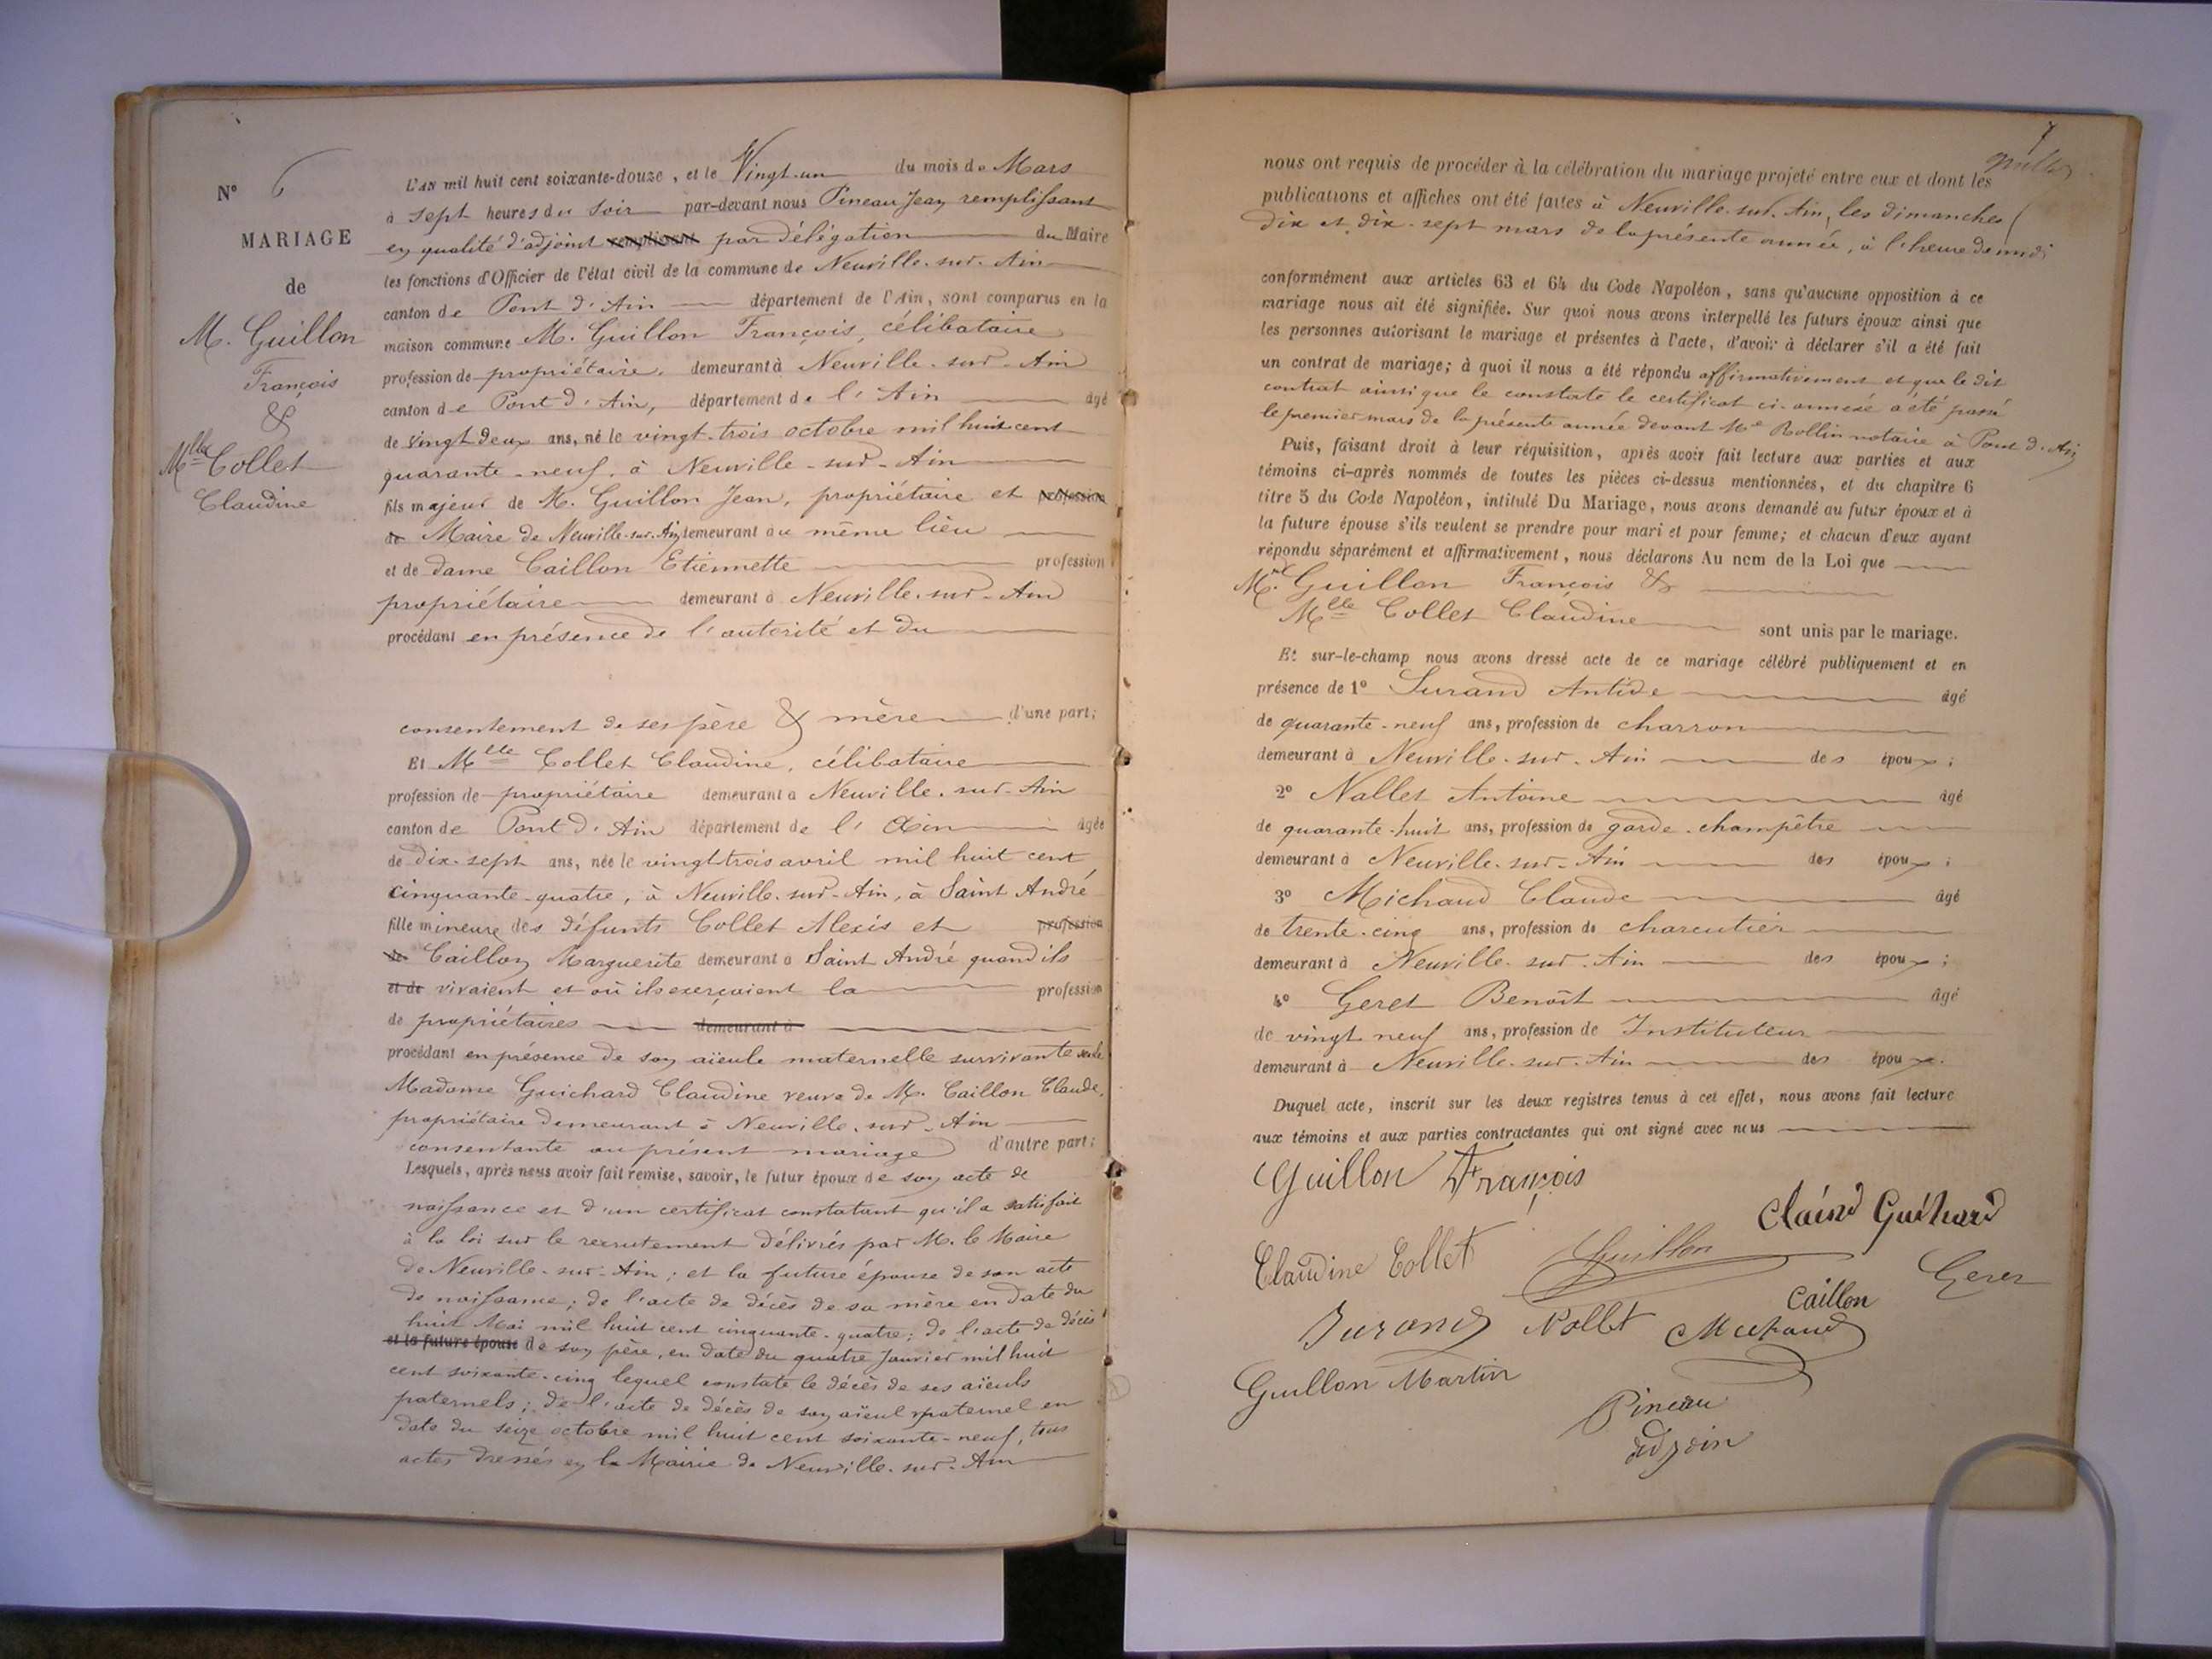 N° 6
MARIAGE
de
M. Guillon
François
&
Mlle Collet
Claudine
L'AN mil huit cent soixante-douze, et le Vingt-un du mois de Mars
à sept heures du soir par-devant nous Pineau Jean remplissant
en qualité d'adjoint remplissant par délégation du Maire
les fonctions d'Officier de l'état civil de la commune de Neuville-sur-Ain
canton de Pont d'Ain département de l'Ain, sont comparus en la
maison commune M. Guillon François, célibataire
profession de propriétaire, demeurant à Neuville-sur-Ain
canton de Pont d'Ain, département de l'Ain âgé
de vingt deux ans, né le vingt-trois octobre mil huit cent
quarante-neuf, à Neuville-sur-Ain
fils majeur de M. Guillon Jean, propriétaire et profession
de Maire de Neuville-sur-Ain demeurant au même lieu
et de dame Caillon Etiennette profession
propriétaire demeurant à Neuville-sur-Ain
procédant en présence de l'autorité et du
consentement de ses père & mère d'une part;
Et Mlle Collet Claudine, célibataire
profession de propriétaire demeurant à Neuville-sur-Ain
canton de Pont d'Ain département de l'Ain âgée
de dix-sept ans, née le vingt-trois avril mil huit cent
cinquante-quatre, à Neuville-sur-Ain, à Saint André
fille mineure des défunts Collet Alexis et profession
de Caillon Marguerite demeurant à Saint André quand ils
et de vivaient et où ils exerçaient la profession
de propriétaires demeurant à
procédant en présence de son aïeule maternelle survivante seule
Madame Guichard Claudine veuve de M. Caillon Claude,
propriétaire demeurant à Neuville-sur-Ain
consentante au présent mariage d'autre part;
Lesquels, après nous avoir fait remise, savoir, le futur époux de son acte de
naissance et d'un certificat constatant qu'il a satisfait
à la loi sur le recrutement délivrés par M. le Maire
de Neuville-sur-Ain; et la future épouse de son acte
de naissance; de l'acte de décès de sa mère en date du
huit Mai mil huit cent cinquante-quatre; de l'acte de décès
et la future épouse de son père, en date du quatre Janvier mil huit
cent soixante-cinq lequel constate le décès de ses aïeuls
paternels; de l'acte de décès de son aïeul maternel en
date du seize octobre mil huit cent soixante-neuf, tous
actes dressés en la Mairie de Neuville-sur-Ain
7
nous ont requis de procéder à la célébration du mariage projeté entre eux et dont les
publications et affiches ont été faites à Neuville-sur-Ain, les dimanches
dix et dix-sept mars de la présente année, à l'heure de midi
conformément aux articles 63 et 64 du Code Napoléon, sans qu'aucune opposition à ce
mariage nous ait été signifiée. Sur quoi nous avons interpellé les futurs époux ainsi que
les personnes autorisant le mariage et présentes à l'acte, d'avoir à déclarer s'il a été fait
un contrat de mariage; à quoi il nous a été répondu affirmativement et que le dit
contrat ainsi que le constate le certificat ci-annexé a été passé
le premier mars de la présente année devant Me Rollin notaire à Pont d'Ain
Puis, faisant droit à leur réquisition, après avoir fait lecture aux parties et aux
témoins ci-après nommés de toutes les pièces ci-dessus mentionnées, et du chapitre 6
titre 5 du Code Napoléon, intitulé Du Mariage, nous avons demandé au futur époux et à
la future épouse s'ils veulent se prendre pour mari et pour femme; et chacun d'eux ayant
répondu séparément et affirmativement, nous déclarons Au nom de la Loi que
M. Guillon François &
Mlle Collet Claudine sont unis par le mariage.
Et sur-le-champ nous avons dressé acte de ce mariage célébré publiquement et en
présence de 1° Surand Antide âgé
de quarante-neuf ans, profession de charron
demeurant à Neuville-sur-Ain des époux;
2° Nallet Antoine âgé
de quarante-huit ans, profession de garde-champêtre
demeurant à Neuville-sur-Ain des époux;
3° Michaud Claude âgé
de trente-cinq ans, profession de charcutier
demeurant à Neuville-sur-Ain des époux;
4° Geret Benoît âgé
de vingt neuf ans, profession de Instituteur
demeurant à Neuville-sur-Ain des époux.
Duquel acte, inscrit sur les deux registres tenus à cet effet, nous avons fait lecture
aux témoins et aux parties contractantes qui ont signé avec nous
Guillon François
Guichard
Claudine Collet Guillon Geret
Caillon
Surand Nallet Michaud
Guillon Martin
Pineau